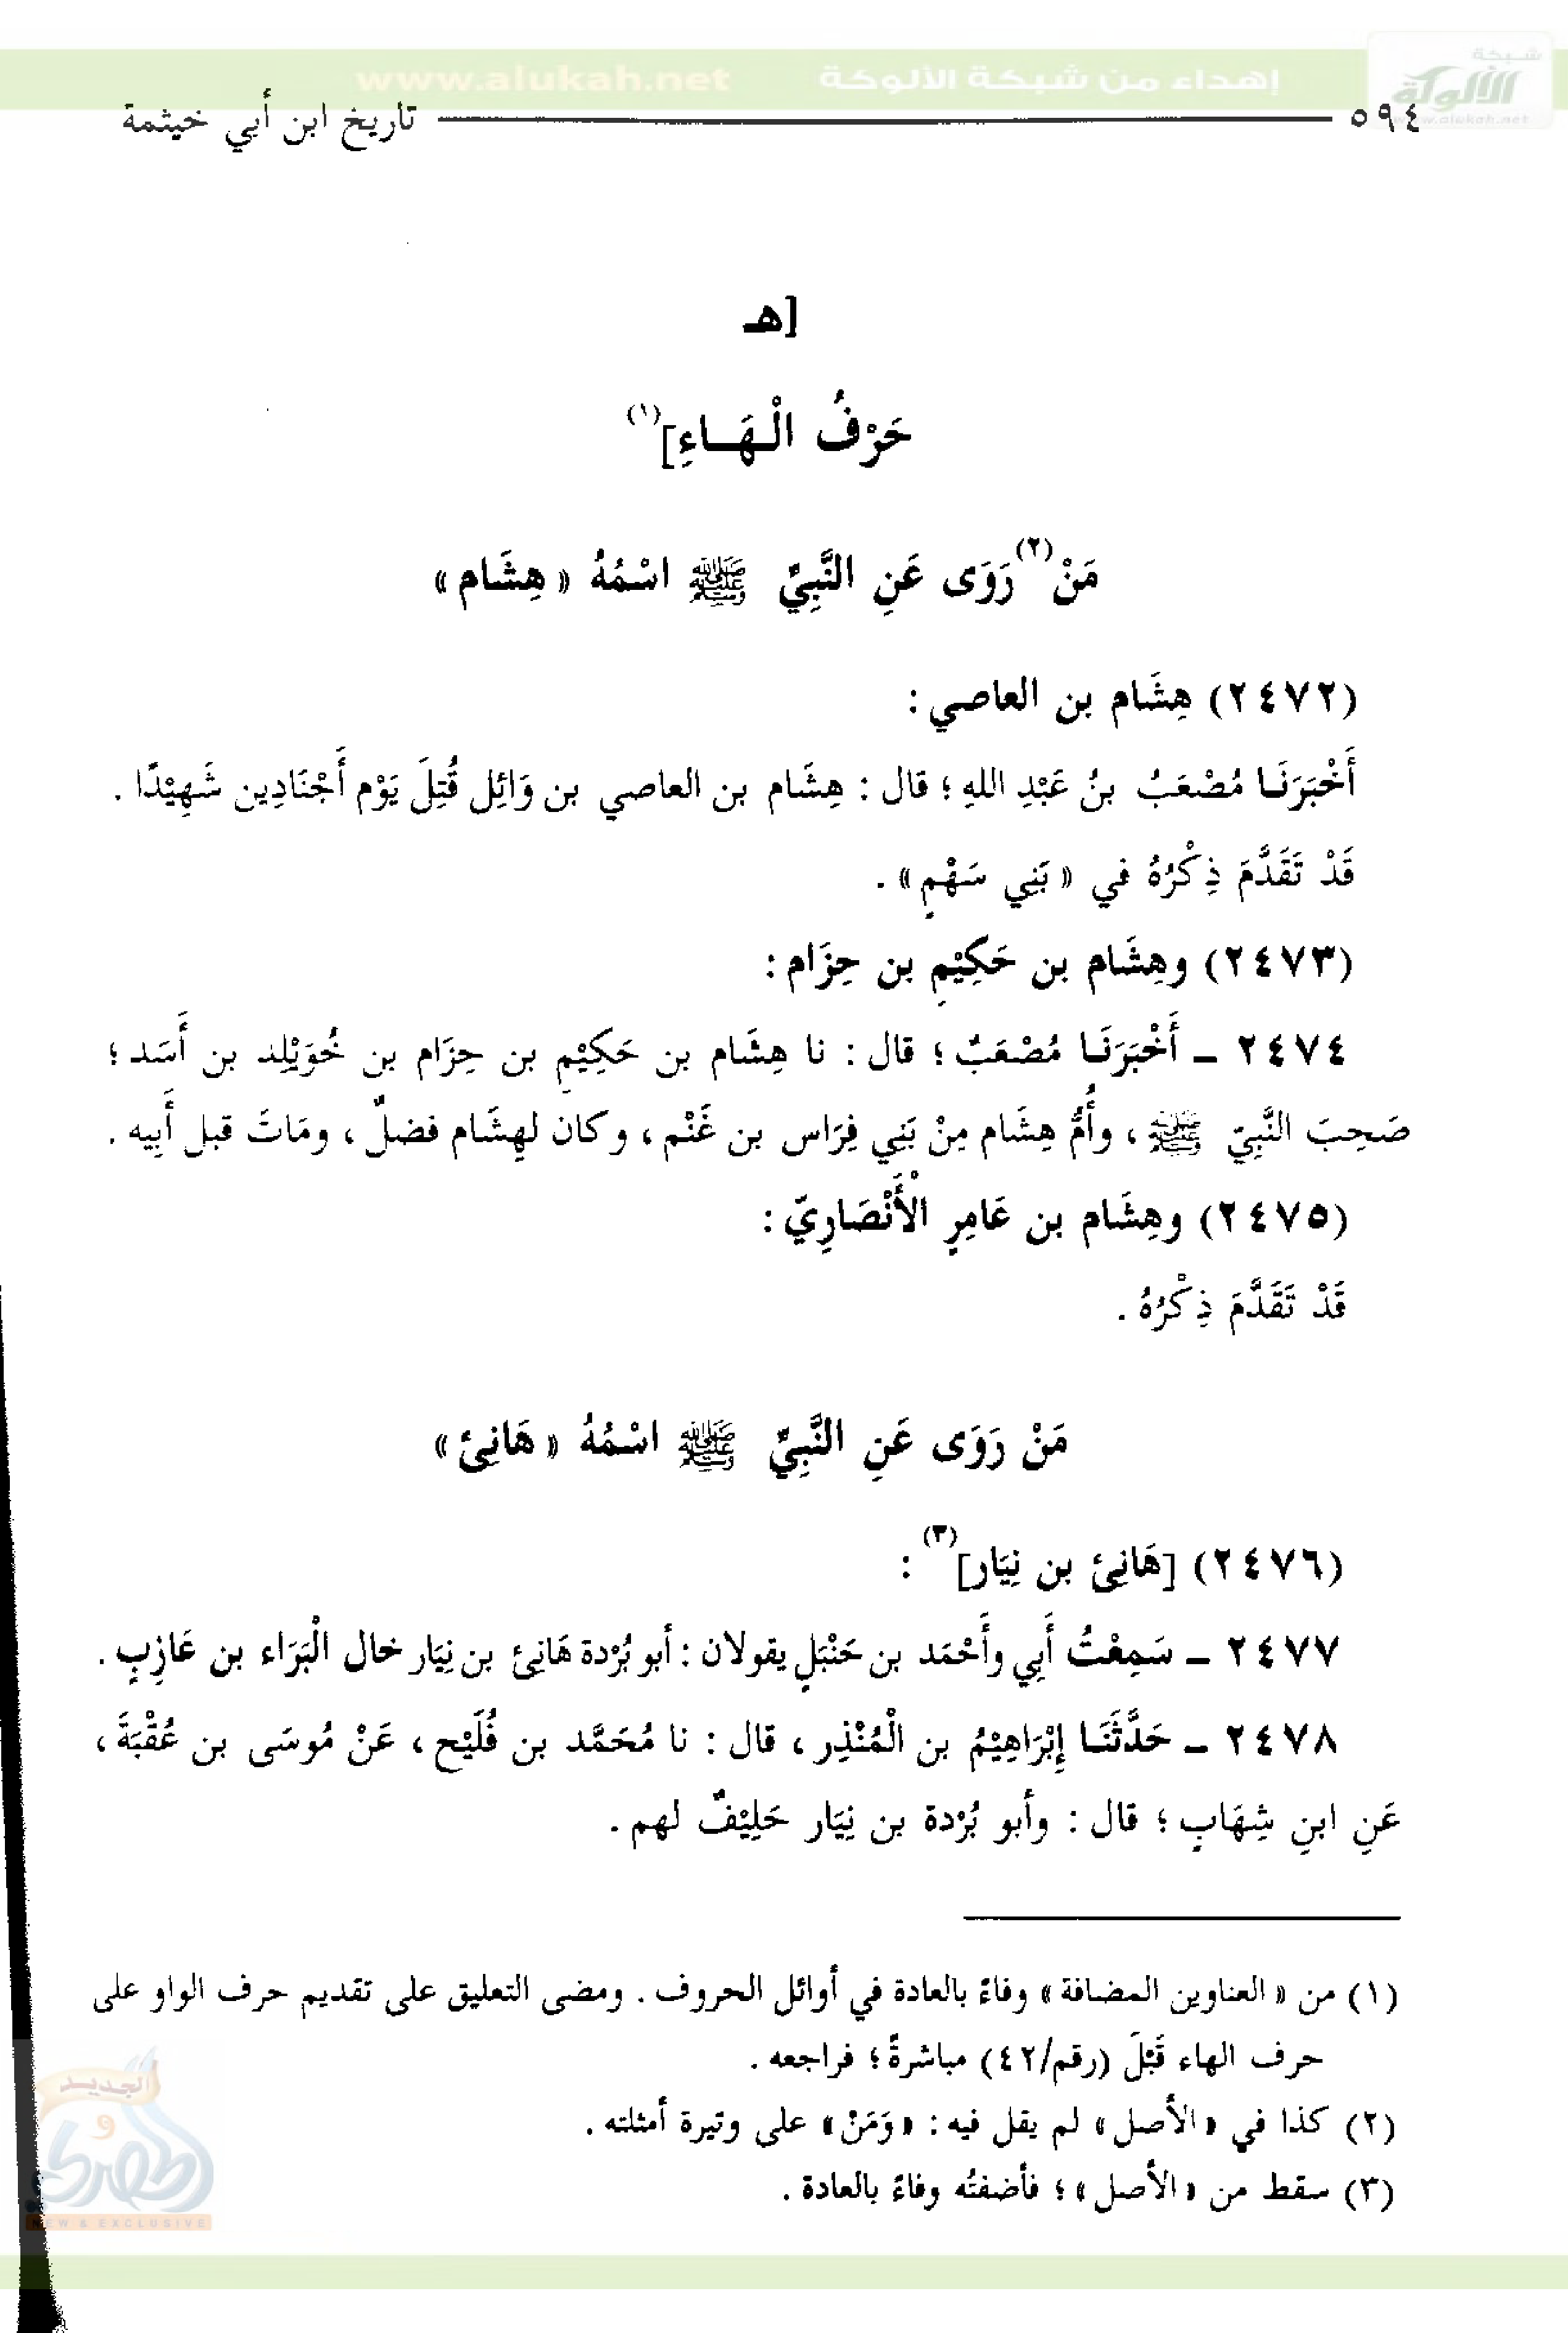 شبكة
الألوكة
www.alukah.net
إهداء من شبكة الألوكة www.alukah.net
٥٩٤ تاريخ ابن أبي خيثمة
[هـ
حَرْفُ الْهَـاءِ](١)
مَنْ(٢) رَوَى عَنِ النَّبِيِّ ﷺ اسْمُهُ « هِشَام »
(٢٤٧٢) هِشَام بن العاصي :
أَخْبَرَنَـا مُصْعَبُ بنُ عَبْدِ اللهِ ؛ قال : هِشَام بن العاصي بن وَائِل قُتِلَ يَوْم أَجْنَادِين شَهِيْدًا .
قَدْ تَقَدَّمَ ذِكْرُهُ في « بَنِي سَهْمٍ » .
(٢٤٧٣) وهِشَام بن حَكِيْمِ بن حِزَام :
٢٤٧٤ ـ أَخْبَرَنَـا مُصْعَبٌ ؛ قال : نا هِشَام بن حَكِيْمِ بن حِزَام بن خُوَيْلِد بن أَسَد ؛
صَحِبَ النَّبِيّ ﷺ ، وأُمُّ هِشَام مِنْ بَنِي فِرَاس بن غَنْم ، وكان لهِشَام فضلٌ ، ومَاتَ قبل أَبِيه .
(٢٤٧٥) وهِشَام بن عَامِرٍ الْأَنْصَارِيّ :
قَدْ تَقَدَّمَ ذِكْرُهُ .
مَنْ رَوَى عَنِ النَّبِيِّ ﷺ اسْمُهُ « هَانِئ »
(٢٤٧٦) [هَانِئ بن نِيَار](٣) :
٢٤٧٧ ـ سَمِعْتُ أَبِي وأَحْمَد بن حَنْبَلٍ يقولان : أبو بُرْدة هَانِئ بن نِيَار خال الْبَرَاء بن عَازِبٍ .
٢٤٧٨ ـ حَدَّثَنَـا إِبْرَاهِيْمُ بن الْمُنْذِر ، قال : نا مُحَمَّد بن فُلَيْح ، عَنْ مُوسَى بن عُقْبَةَ ،
عَنِ ابنِ شِهَابٍ ؛ قال : وأبو بُرْدة بن نِيَار حَلِيْفٌ لهم .
(١) من « العناوين المضافة » وفاءً بالعادة في أوائل الحروف . ومضى التعليق على تقديم حرف الواو على
حرف الهاء قَبْلَ (رقم/٤٢) مباشرةً ؛ فراجعه .
(٢) كذا في « الأصل » لم يقل فيه : « وَمَنْ » على وتيرة أمثلته .
(٣) سقط من « الأصل » ؛ فأضفتُه وفاءً بالعادة .
الجديد
و
NEW & EXCLUSIVE